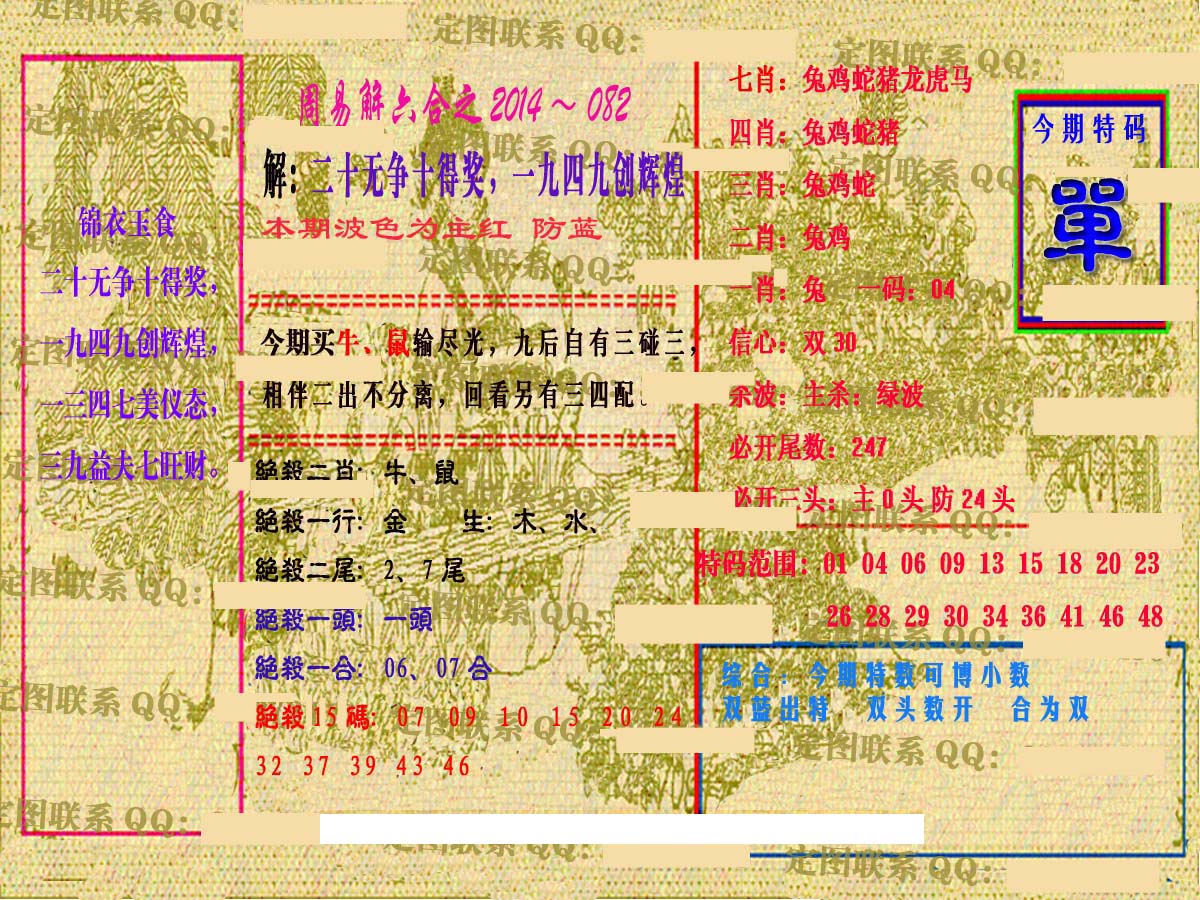 周易解六合之 2014～082
锦衣玉食
二十无争十得奖，
一九四九创辉煌，
一三四七美仪态，
三九益夫七旺财。
解：二十无争十得奖，一九四九创辉煌
本期波色为主红 防蓝
今期买牛、鼠输尽光，九后自有三碰三，
相伴二出不分离，回看另有三四配
絕殺二肖：牛、鼠
絕殺一行：金 生：木、水、
絕殺二尾：2、7尾
絕殺一頭：一頭
絕殺一合：06、07合
絕殺15碼：07 09 10 15 20 24
32 37 39 43 46
七肖：兔鸡蛇猪龙虎马
四肖：兔鸡蛇猪
三肖：兔鸡蛇
二肖：兔鸡
一肖：兔 一码：04
信心：双30
杀波：主杀：绿波
必开尾数：247
必开三头：主0头防24头
特码范围：01 04 06 09 13 15 18 20 23
26 28 29 30 34 36 41 46 48
今期特码
單
综合：今期特数可博小数
双蓝出特 双头数开 合为双
定图联系 QQ：
定图联系 QQ：
定图联系 QQ：
定图联系 QQ：
定图联系 QQ：
定图联系 QQ：
定图联系 QQ：